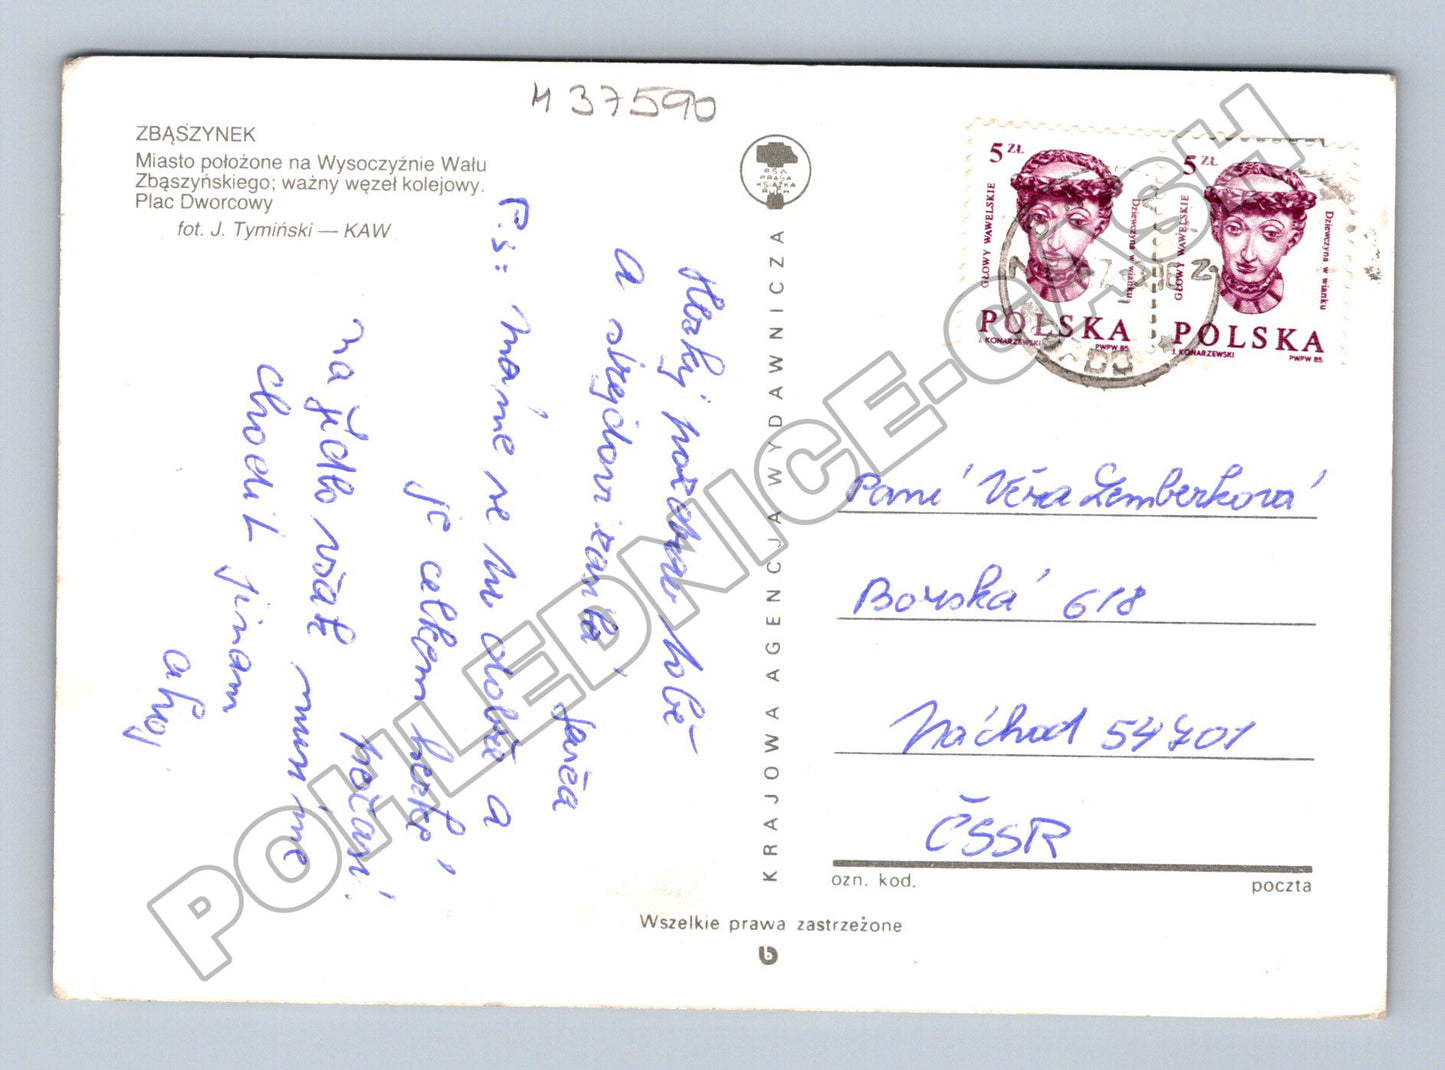 M 37590
ZBĄSZYNEK
Miasto położone na Wysoczyźnie Wału
Zbąszyńskiego; ważny węzeł kolejowy.
Plac Dworcowy
fot. J. Tymiński — KAW
Hezký pozdrav tobě
a strejdovi zasílá
Jarča
P.S: máme se tu dobře a
je celkem hezké
počasí.
na jídlo však musíme
chodit jinam
ahoj
KRAJOWA AGENCJA WYDAWNICZA
RSW
PRASA
KSIĄŻKA
RUCH
5 ZŁ
GŁOWY WAWELSKIE
Dziewczyna w wianku
POLSKA
J. KONARZEWSKI
PWPW 85
5 ZŁ
GŁOWY WAWELSKIE
Dziewczyna w wianku
POLSKA
J. KONARZEWSKI
PWPW 85
Paní Věra Lemberková
Borská 618
Náchod 54701
ČSSR
ozn. kod.
poczta
Wszelkie prawa zastrzeżone
POHLEDNICE-CASH